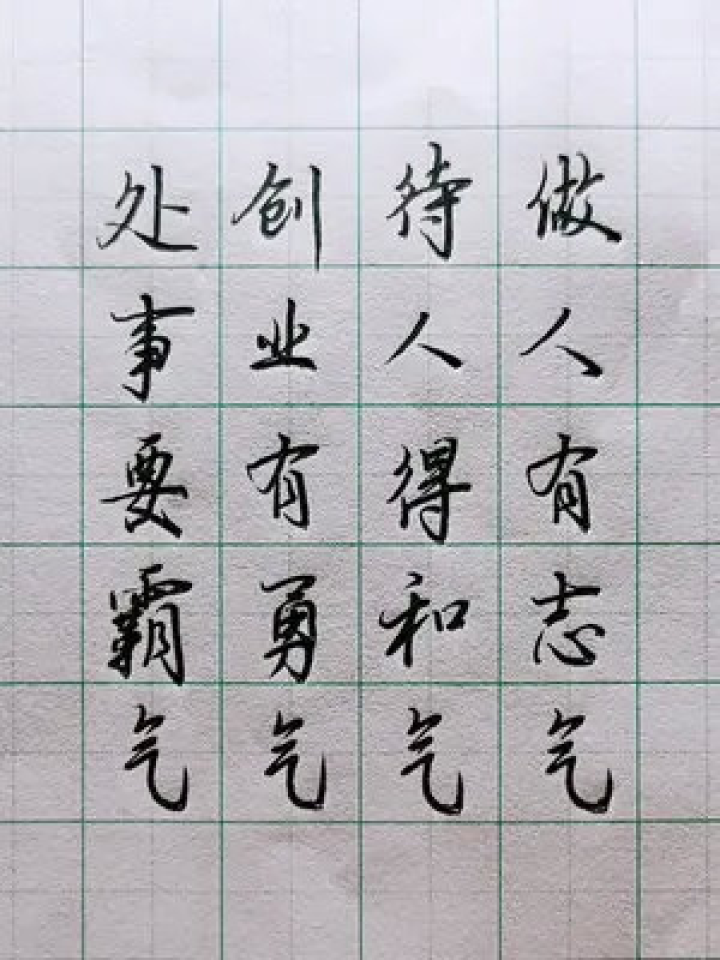 做人有志气
待人得和气
创业有勇气
处事要霸气